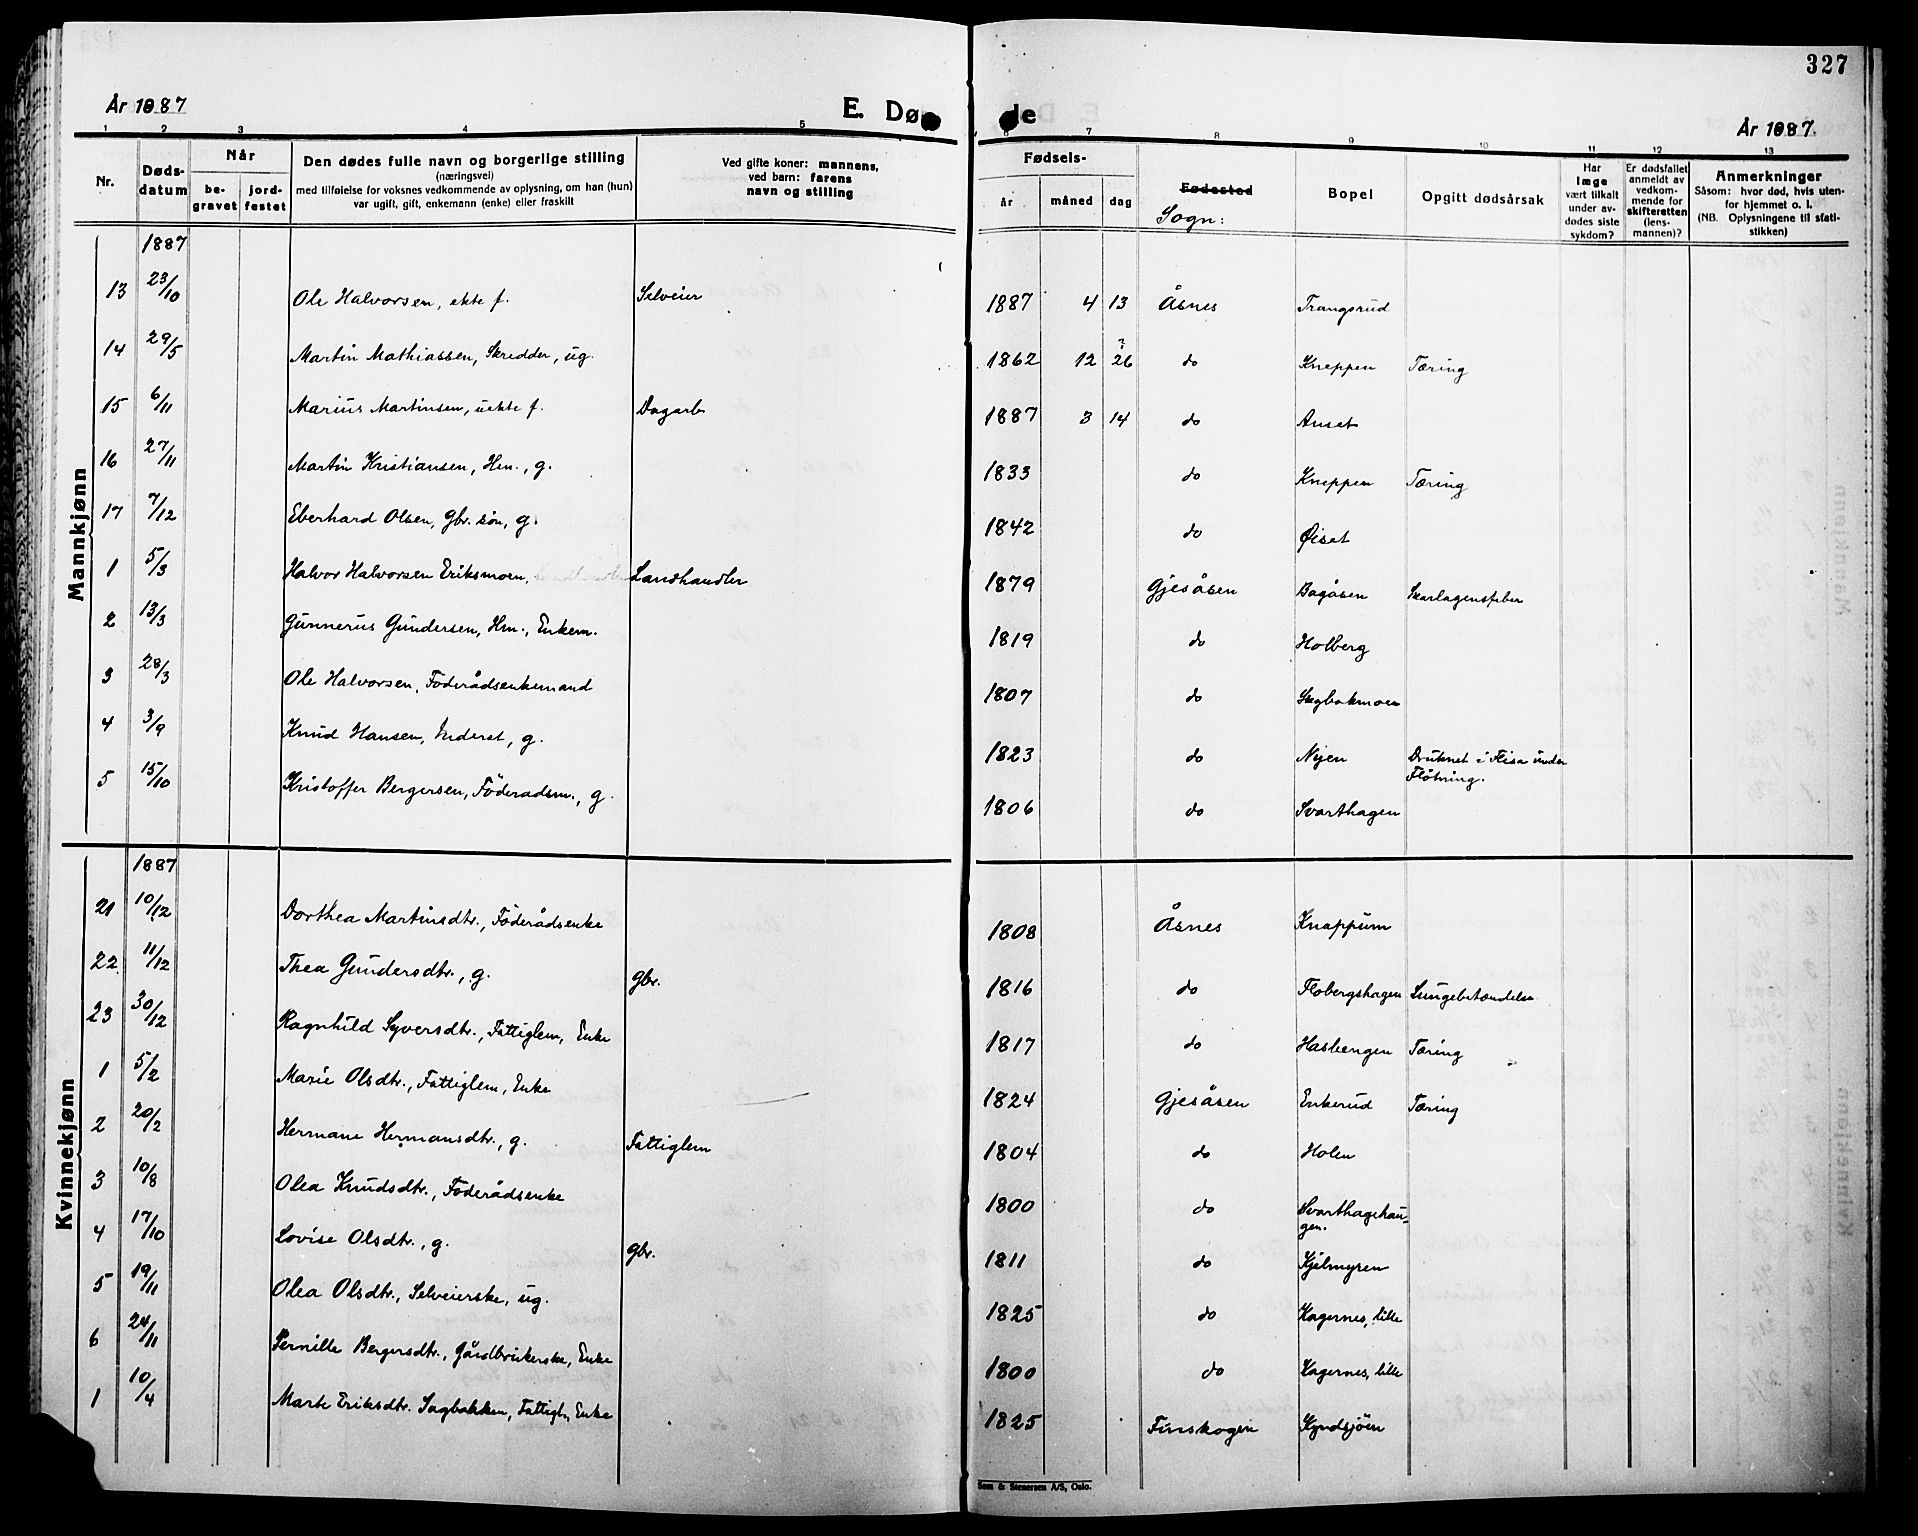 327
År 1887
E. Dø de
År 1887.
1 2 3 4 5 6 7 8 9 10 11 12 13
Nr.
Døds-
datum
Når
be-
gravet
jord-
festet
Den dødes fulle navn og borgerlige stilling
(næringsvei)
med tilføielse for voksnes vedkommende av oplysning, om han (hun)
var ugift, gift, enkemann (enke) eller fraskilt
Ved gifte koner: mannens,
ved barn: farens
navn og stilling
Fødsels-
år måned dag
Fødested
Sogn:
Bopel
Opgitt dødsårsak
Har
læge
vært tilkalt
under av-
dødes siste
sykdom?
Er dødsfallet
anmeldt av
vedkom-
mende for
skifteretten
(lens-
mannen)?
Anmerkninger
Såsom: hvor død, hvis uten-
for hjemmet o. l.
(NB. Oplysningene til stati-
stikken)
Mannkjønn
1887
13 23/10 Ole Halvorsen, ekte f. Selveier 1887 4 13 Åsnes Trangsrud
14 29/5 Martin Mathiassen, Skredder, ug. 1862 12 26 ? do Kneppen Tæring
15 6/11 Marius Martinsen, uekte f. Dagarb 1887 3 14 do Auset
16 27/11 Martin Kristiansen, Hm., g. 1833 do Kneppen Tæring
17 7/12 Eberhard Olsen, Gbr. søn, g. 1842 do Øiset
1 5/3 Halvor Halvorsen Eriksmoen, Landhandler 1879 Gjesåsen Bagåsen Skarlagensfeber
2 13/3 Gunnerus Gundersen, Hm., Enkem. 1819 do Holberg
3 28/3 Ole Halvorsen, Föderådsenkemand 1807 do Sagbakmoen
4 3/9 Knud Hansen, Inderst, g. 1823 do Nyen Druknet i Flisa under
Flötning.
5 15/10 Kristoffer Bergersen, Föderadsm., g. 1806 do Svarthagen
Kvinnekjønn
1887
21 10/12 Dorthea Martinsdtr., Föderådsenke 1808 Åsnes Knappum
22 11/12 Thea Gundersdtr., g. gbr. 1816 do Flobergshagen Lungebetændelse
23 30/12 Ragnhild Syversdtr., Fattiglem, Enke 1817 do Hasbengen Tæring
1 5/2 Marie Olsdtr., Fattiglem, Enke 1824 Gjesåsen Enkerud Tæring
2 20/2 Hermane Hermansdtr., g. Fattiglem 1804 do Holen
3 10/8 Olea Knudsdtr., Föderådsenke 1800 do Svarthagehau-
gen.
4 17/10 Lovise Olsdtr., g. gbr. 1811 do Kjelmyren
5 19/11 Olea Olsdtr., Selveierske, ug. 1825 do Kagernes, lille
6 24/11 Pernille Bergersdtr., Gårdbrukerske, Enke 1800 do Kagernes, lille
1 10/4 Marte Eriksdtr. Sagbakken, Fattigl., Enke 1825 Finskogen Kyndsjöen
Sem & Stenersen A/S, Oslo.